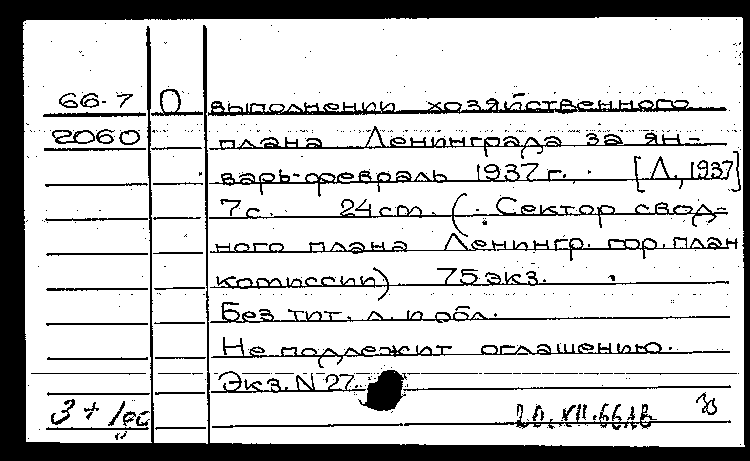 66-7 О выполнении хозяйственного
2060 плана Ленинграда за ян-
варь-февраль 1937 г. [Л., 1937]
7 с. 24 ст. (Сектор свод-
ного плана Ленингр. гор. план
комиссии) 75 экз.
Без тит. л. и обл.
Не подлежит оглашению.
Экз. N 27.
3 + 1
20.XII.66